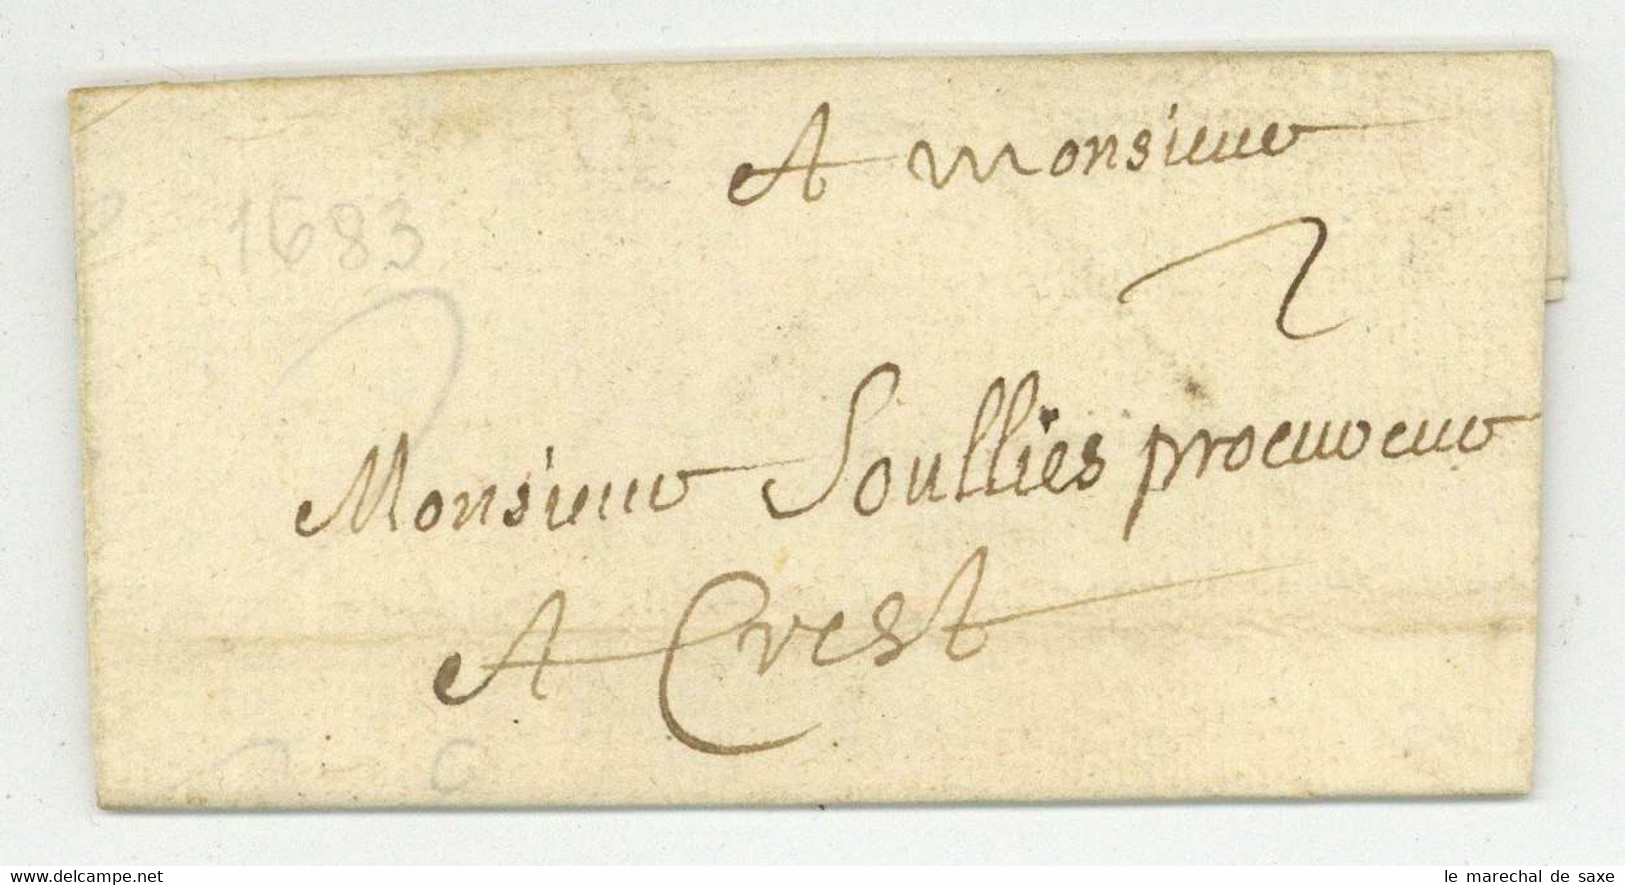 A Monsieur
1683
2
Monsieur Soulliés procureur
A Crest
C
www.delcampe.net
le marechal de saxe